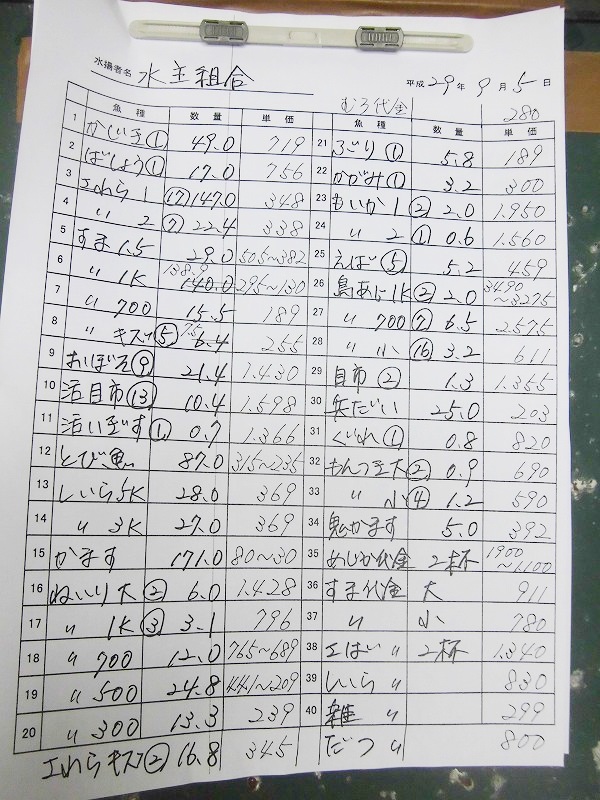 水揚者名 水主組合
平成 29 年 9 月 5 日
むろ代金 280
魚種 数量 単価
1 かじき① 49.0 719
2 ばしょう① 17.0 756
3 エれら 1 ⑰ 147.0 348
4 〃 2 ⑦ 22.4 338
5 すま 1.5 29.0 505~382
6 〃 1K 138.9 140.0 295~130
7 〃 700 15.5 189
8 〃 キズ⑤ 7.5 6.4 255
9 おいぼそ⑨ 21.4 1.430
10 活目市⑬ 10.4 1.598
11 活いぼす① 0.7 1.366
12 とび魚 87.0 315~235
13 しいら5K 28.0 369
14 〃 3K 27.0 369
15 かます 171.0 80~30
16 ねいり大② 6.0 1.428
17 〃 1K③ 3.1 796
18 〃 700 12.0 765~689
19 〃 500 24.8 441~209
20 〃 300 13.3 239
エれらキズ② 16.8 345
魚種 数量 単価
21 ふごり① 5.8 189
22 かがみ① 3.2 300
23 もいか 1② 2.0 1.950
24 〃 2① 0.6 1.560
25 えばも⑤ 5.2 459
26 島あじ1K② 2.0 3490~3275
27 〃 700⑦ 6.5 2.575
28 〃 小⑯ 3.2 611
29 目市② 1.3 1.355
30 兵だい 25.0 203
31 ぐれ① 0.8 820
32 もんつき大② 0.9 690
33 〃 小④ 1.2 590
34 鬼かます 5.0 392
35 めじか代金 2杯 1900~1.100
36 すま代金 大 911
37 〃 小 780
38 エばい〃 2杯 1.340
39 しいら〃 830
40 雑〃 299
だつ〃 800